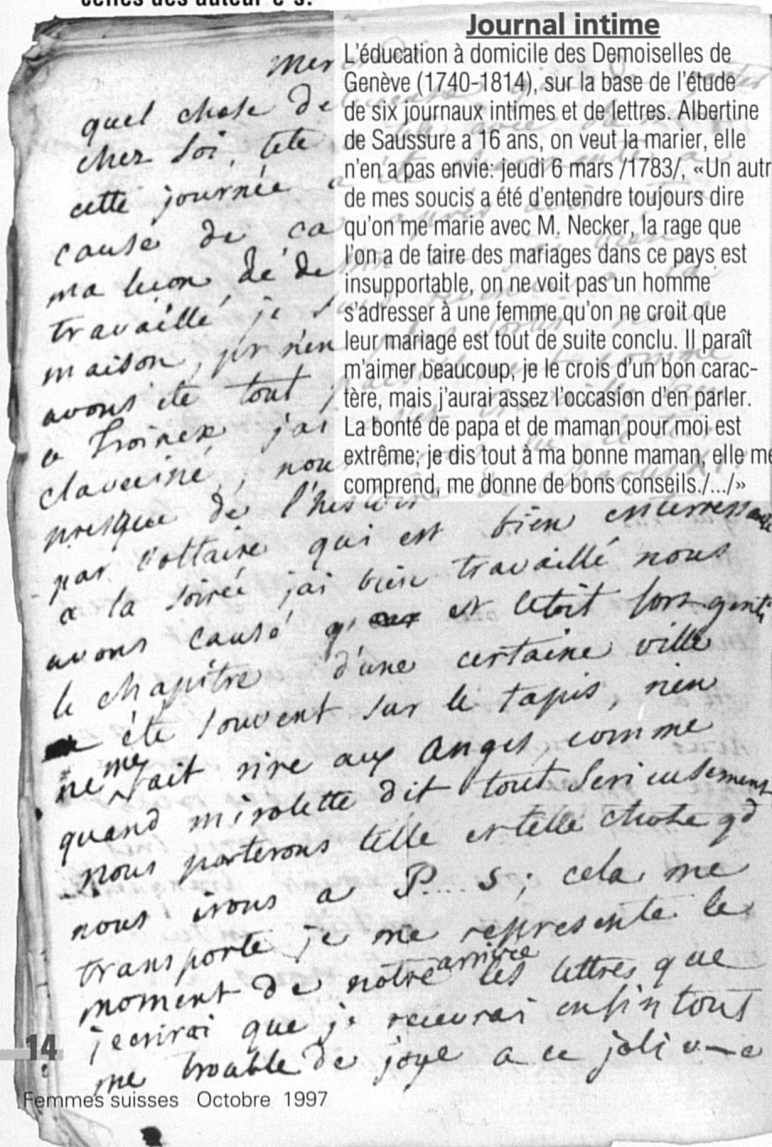 celles des auteur-e-s.
Journal intime
L'éducation à domicile des Demoiselles de
Genève (1740-1814), sur la base de l'étude
de six journaux intimes et de lettres. Albertine
de Saussure a 16 ans, on veut la marier, elle
n'en a pas envie: jeudi 6 mars /1783/, «Un autr
de mes soucis a été d'entendre toujours dire
qu'on me marie avec M. Necker, la rage que
l'on a de faire des mariages dans ce pays est
insupportable, on ne voit pas un homme
s'adresser à une femme qu'on ne croit que
leur mariage est tout de suite conclu. Il paraît
m'aimer beaucoup, je le crois d'un bon carac-
tère, mais j'aurai assez l'occasion d'en parler.
La bonté de papa et de maman pour moi est
extrême; je dis tout à ma bonne maman, elle me
comprend, me donne de bons conseils./.../»
Mer
quel chose de
chez soi, tete
cette journée a
cause de ca
ma lecon de de
travaillé je s
maison, pr rien
avons ete tout
a Troinex j'ai
claveciné, nou
presque de l'histoir
par Voltaire qui est bien interressante
a la soirée jai bien travaillé nous
avons causé et letoit fort genti
le chapitre d'une certaine ville
a été souvent sur le tapis, rien
ne me fait rire aux anges comme
quand mirolette dit tout serieusement
nous porterons telle et telle chose qd
nous irons a P.... S; cela me
transporte je me represente le
moment de notre arrivée les lettres que
j'ecrirai que je recevrai enfin tout
me trouble de joye a ce joli
14
Femmes suisses Octobre 1997